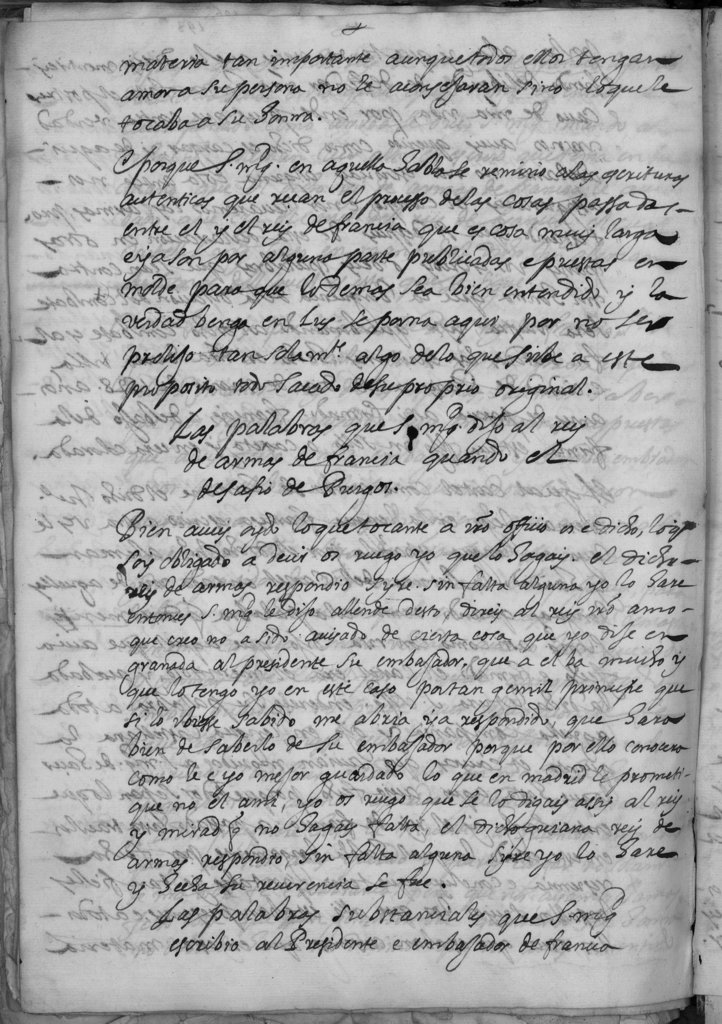 materia tan importante aunque todos ellos tengan
amor a su persona no le aconsejaran sino lo que le
tocaba a su honrra.
E porque S. mgt. en aquella habla se remitio a las escrituras
autenticas que rezan el processo de las cosas passadas
entre el y el rey de francia que es cosa muy larga
e ya son por alguna parte publicadas e puestas en
molde para que lo demas sea bien entendido y la
verdad benga en luz se porna aqui por no ser
prolijo tan solamte. algo de lo que sirbe a este
proposito todo sacado de su proprio original.
Las palabras que S. mgt dijo al rey
de armas de francia quando el
desafio de Burgos.
Bien aveis oydo lo que tocante a vro officio os e dicho, lo q
sois obligado a decir os ruego yo que lo hagais. el dicho
rey de armas respondio syre. sin falta alguna yo lo hare
entonces S. mgt le dijo allende desto, direis al rey vro amo
que creo no a sido avisado de cierta cosa que yo dije en
granada al presidente su embajador, que a el ba mucho y
que lo tengo yo en este caso por tan gentil principe que
si lo vbiesse sabido me abria ya respondido, que hara
bien de saberlo de su embajador porque por ello conocera
como le e yo mejor guardado lo que en madrid le prometi
que no el a mi, yo os ruego que se lo digais assi al rey
y mirad q no hagais falta, el dicho guiana rey de
armas respondio, sin falta alguna syre yo lo hare
y hecha su reverencia se fue.
Las palabras substanciales que S. mgt
escribio al Presidente e embajador de francia